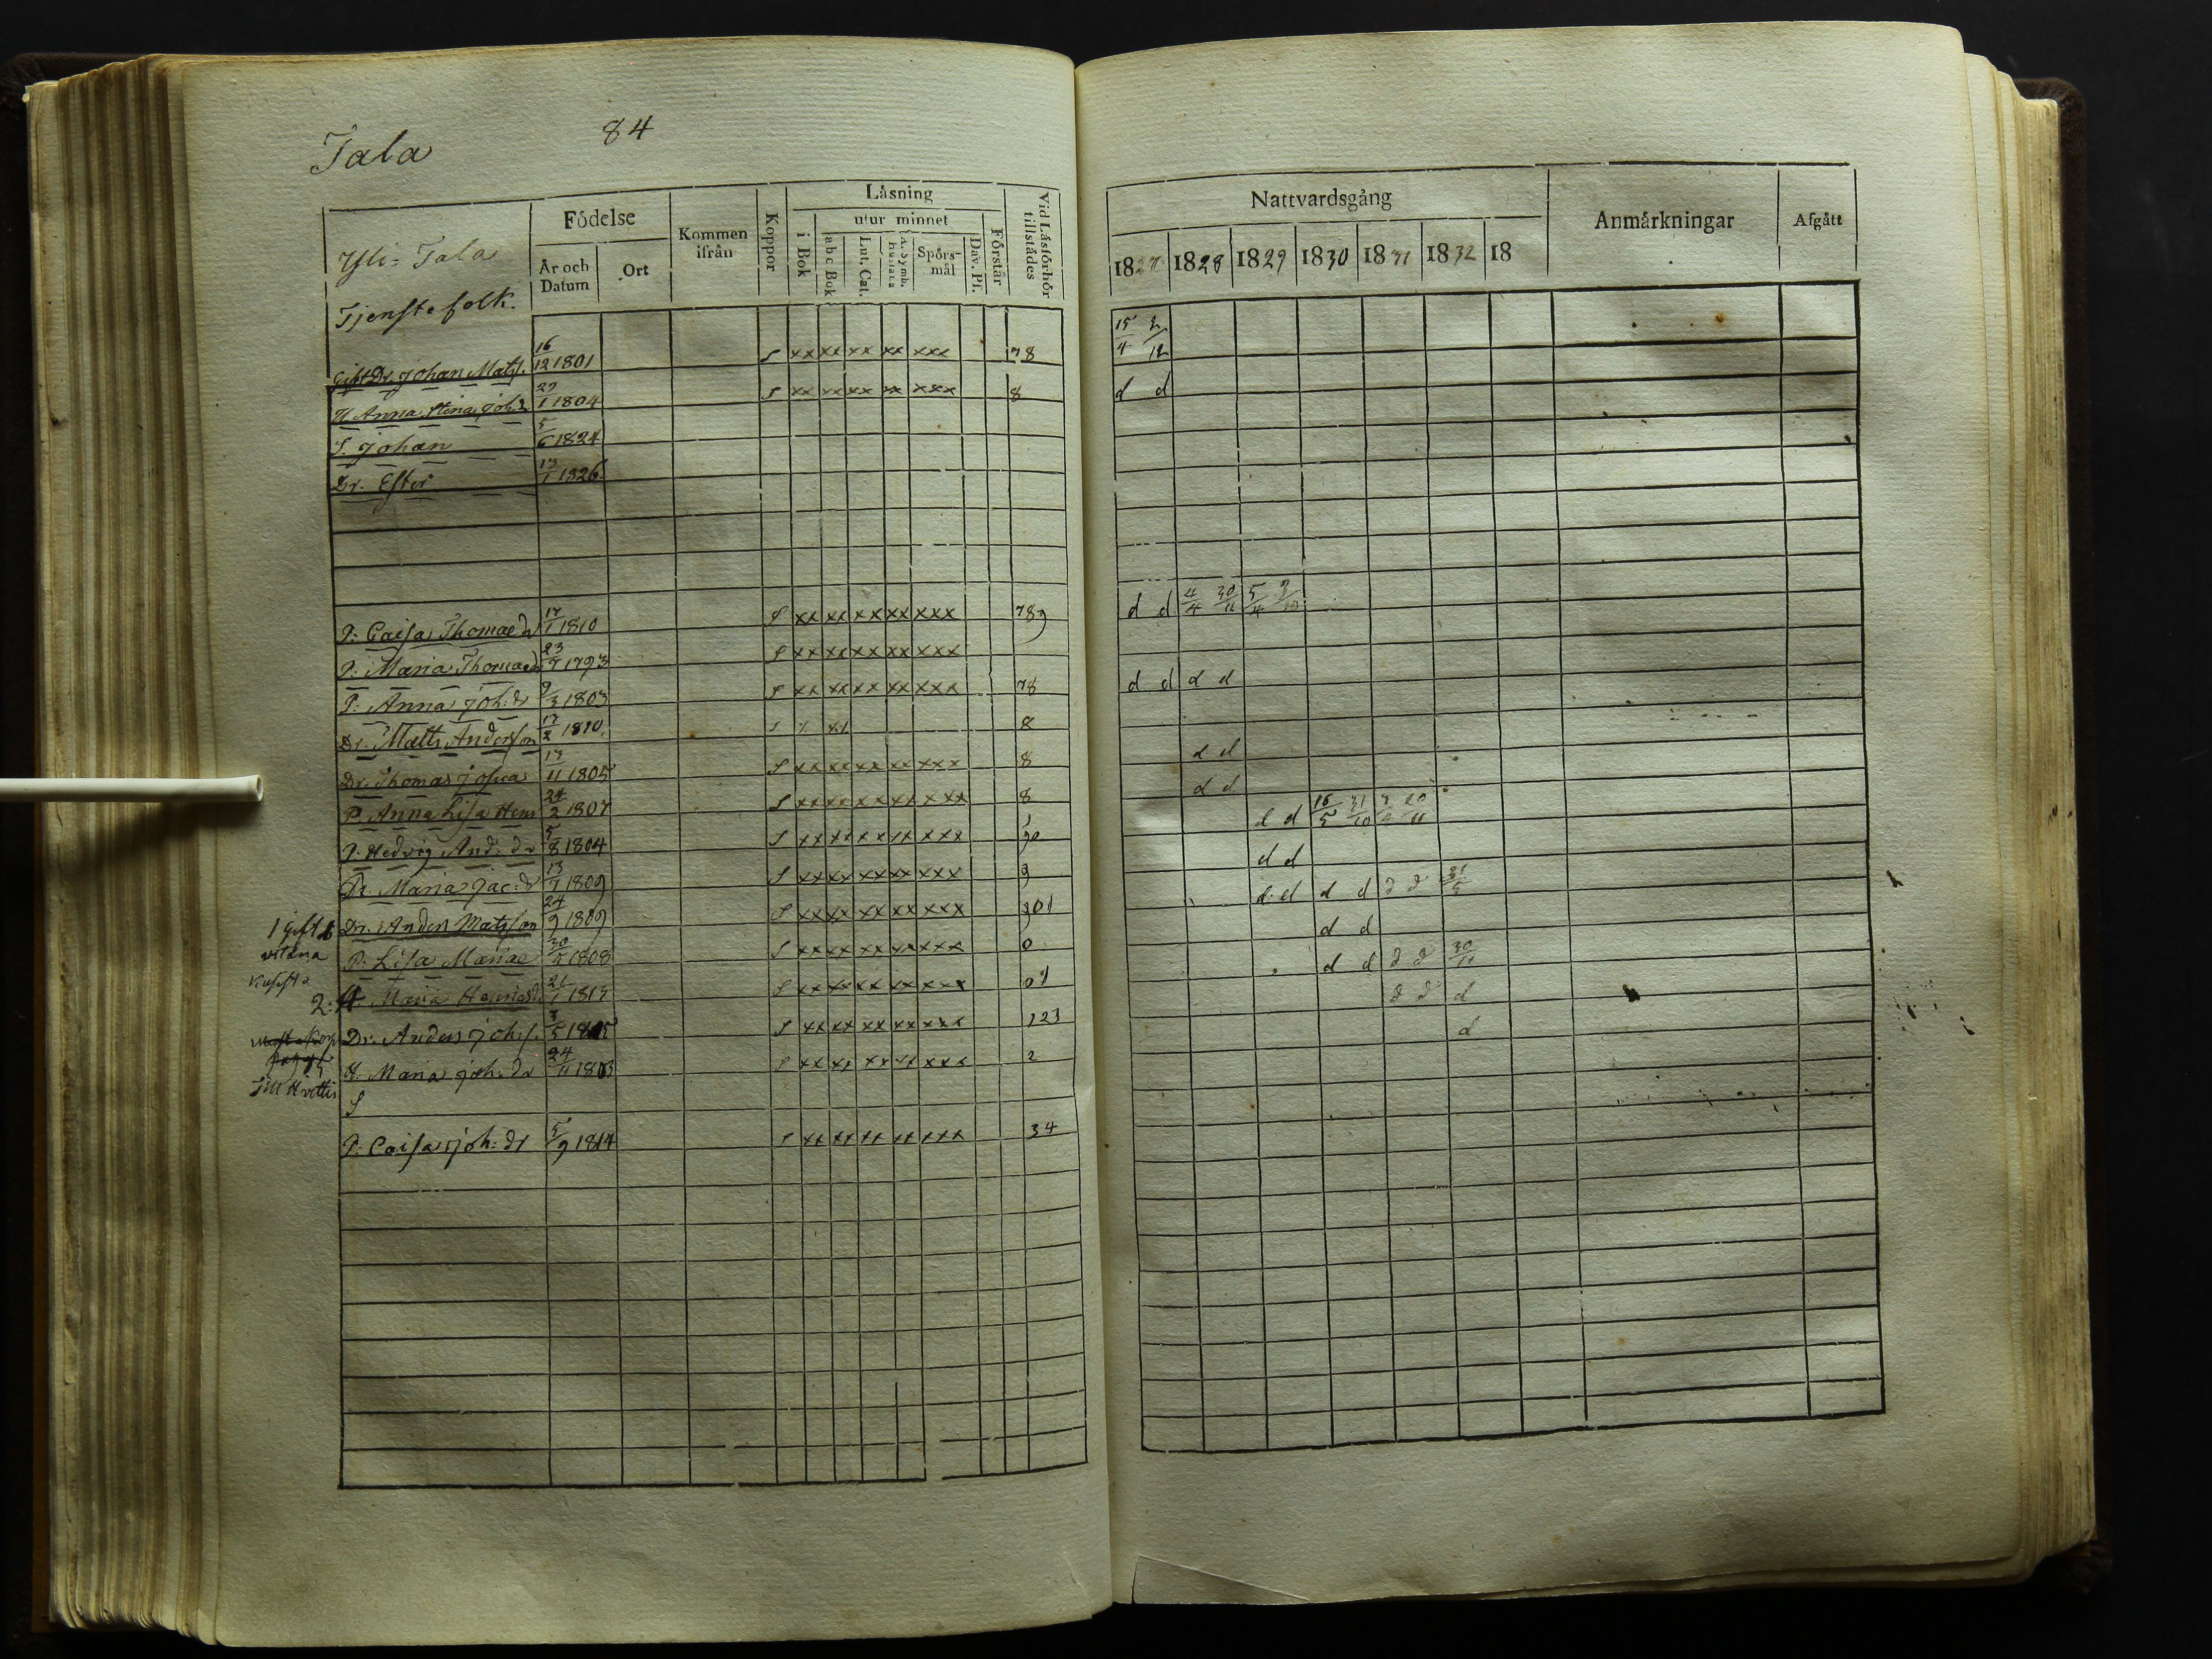 Tala 84
Yli=Tala
Tjenstefolk.
Födelse
År och Datum
Ort
Kommen ifrån
Koppor
Läsning
i Bok
utur minnet
abc Bok
Lut. Cat.
A. Symb.
Hustafla
Spörs-mål
Dav. Pf.
Förstår
Vid Läsförhör tillstädes
Nattvardsgång
1827 1828 1829 1830 1831 1832 18
Anmärkningar
Afgått
Gift Dr. Johan Mats. 16/12 1801 S xx xx xx xx xxx 78 15/4 2/12
H. Anna Stina Joh.d 29/1 1804 S xx xx xx xx xxx 8 d d
S. Johan 5/6 1824
Dr. Ester 13/1 1826
P: Caisa Thomæ dr 17/1 1810 S xx xx xx xx xxx 789 d d 4/4 30/11 5/4
P: Maria Thomæ d 23/7 1793 S xx xx xx xx xxx
P: Anna Joh: dr 9/3 1803 S xx xx xx xx xxx 78 d d d d
Dr. Matts Andersson 17/2 1810 8
Dr. Thomas Josua 13/11 1805 S xx xx xx xx xxx 8 d d
P. Anna Lisa Hens 24/2 1807 S xx xx xx xx xxx 8 d d
P. Hedvig And: dr 5/8 1804 S xx xx xx xx xxx 90 d d 16/5 31/10
P. Maria Jac: d 13/7 1809 S xx xx xx xx xxx 9 d d
1 Gift
Dr. Anders Matsson 24/9 1809 S xx xx xx xx xxx 901 d d d d d d
P: Lisa Mariæ 30/5 1808 S xx xx xx xx xxx 0 d d
2: H. Maria 21/1 1813 S xx xx xx xx xxx 01 d d d d 30/11
Dr. Anders Joh: s. 5 1805 S xx xx xx xx xxx 123 d d d
H. Maria Joh: dr 24/11 1803 S xx xx xx xx xxx 2 d
Till Hvittis
S
P: Caisa Joh: dr 5/9 1814 S xx xx xx xx xxx 34